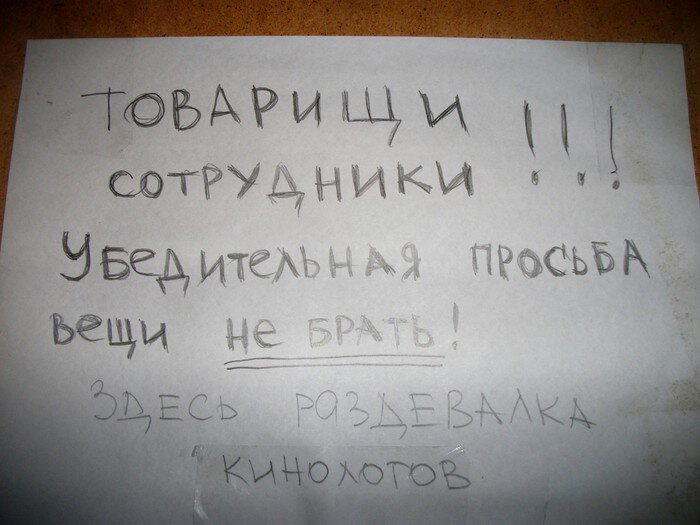 ТОВАРИЩИ
СОТРУДНИКИ !!!
УБЕДИТЕЛЬНАЯ ПРОСЬБА
ВЕЩИ НЕ БРАТЬ!
ЗДЕСЬ РАЗДЕВАЛКА
КИНОХОТОВ